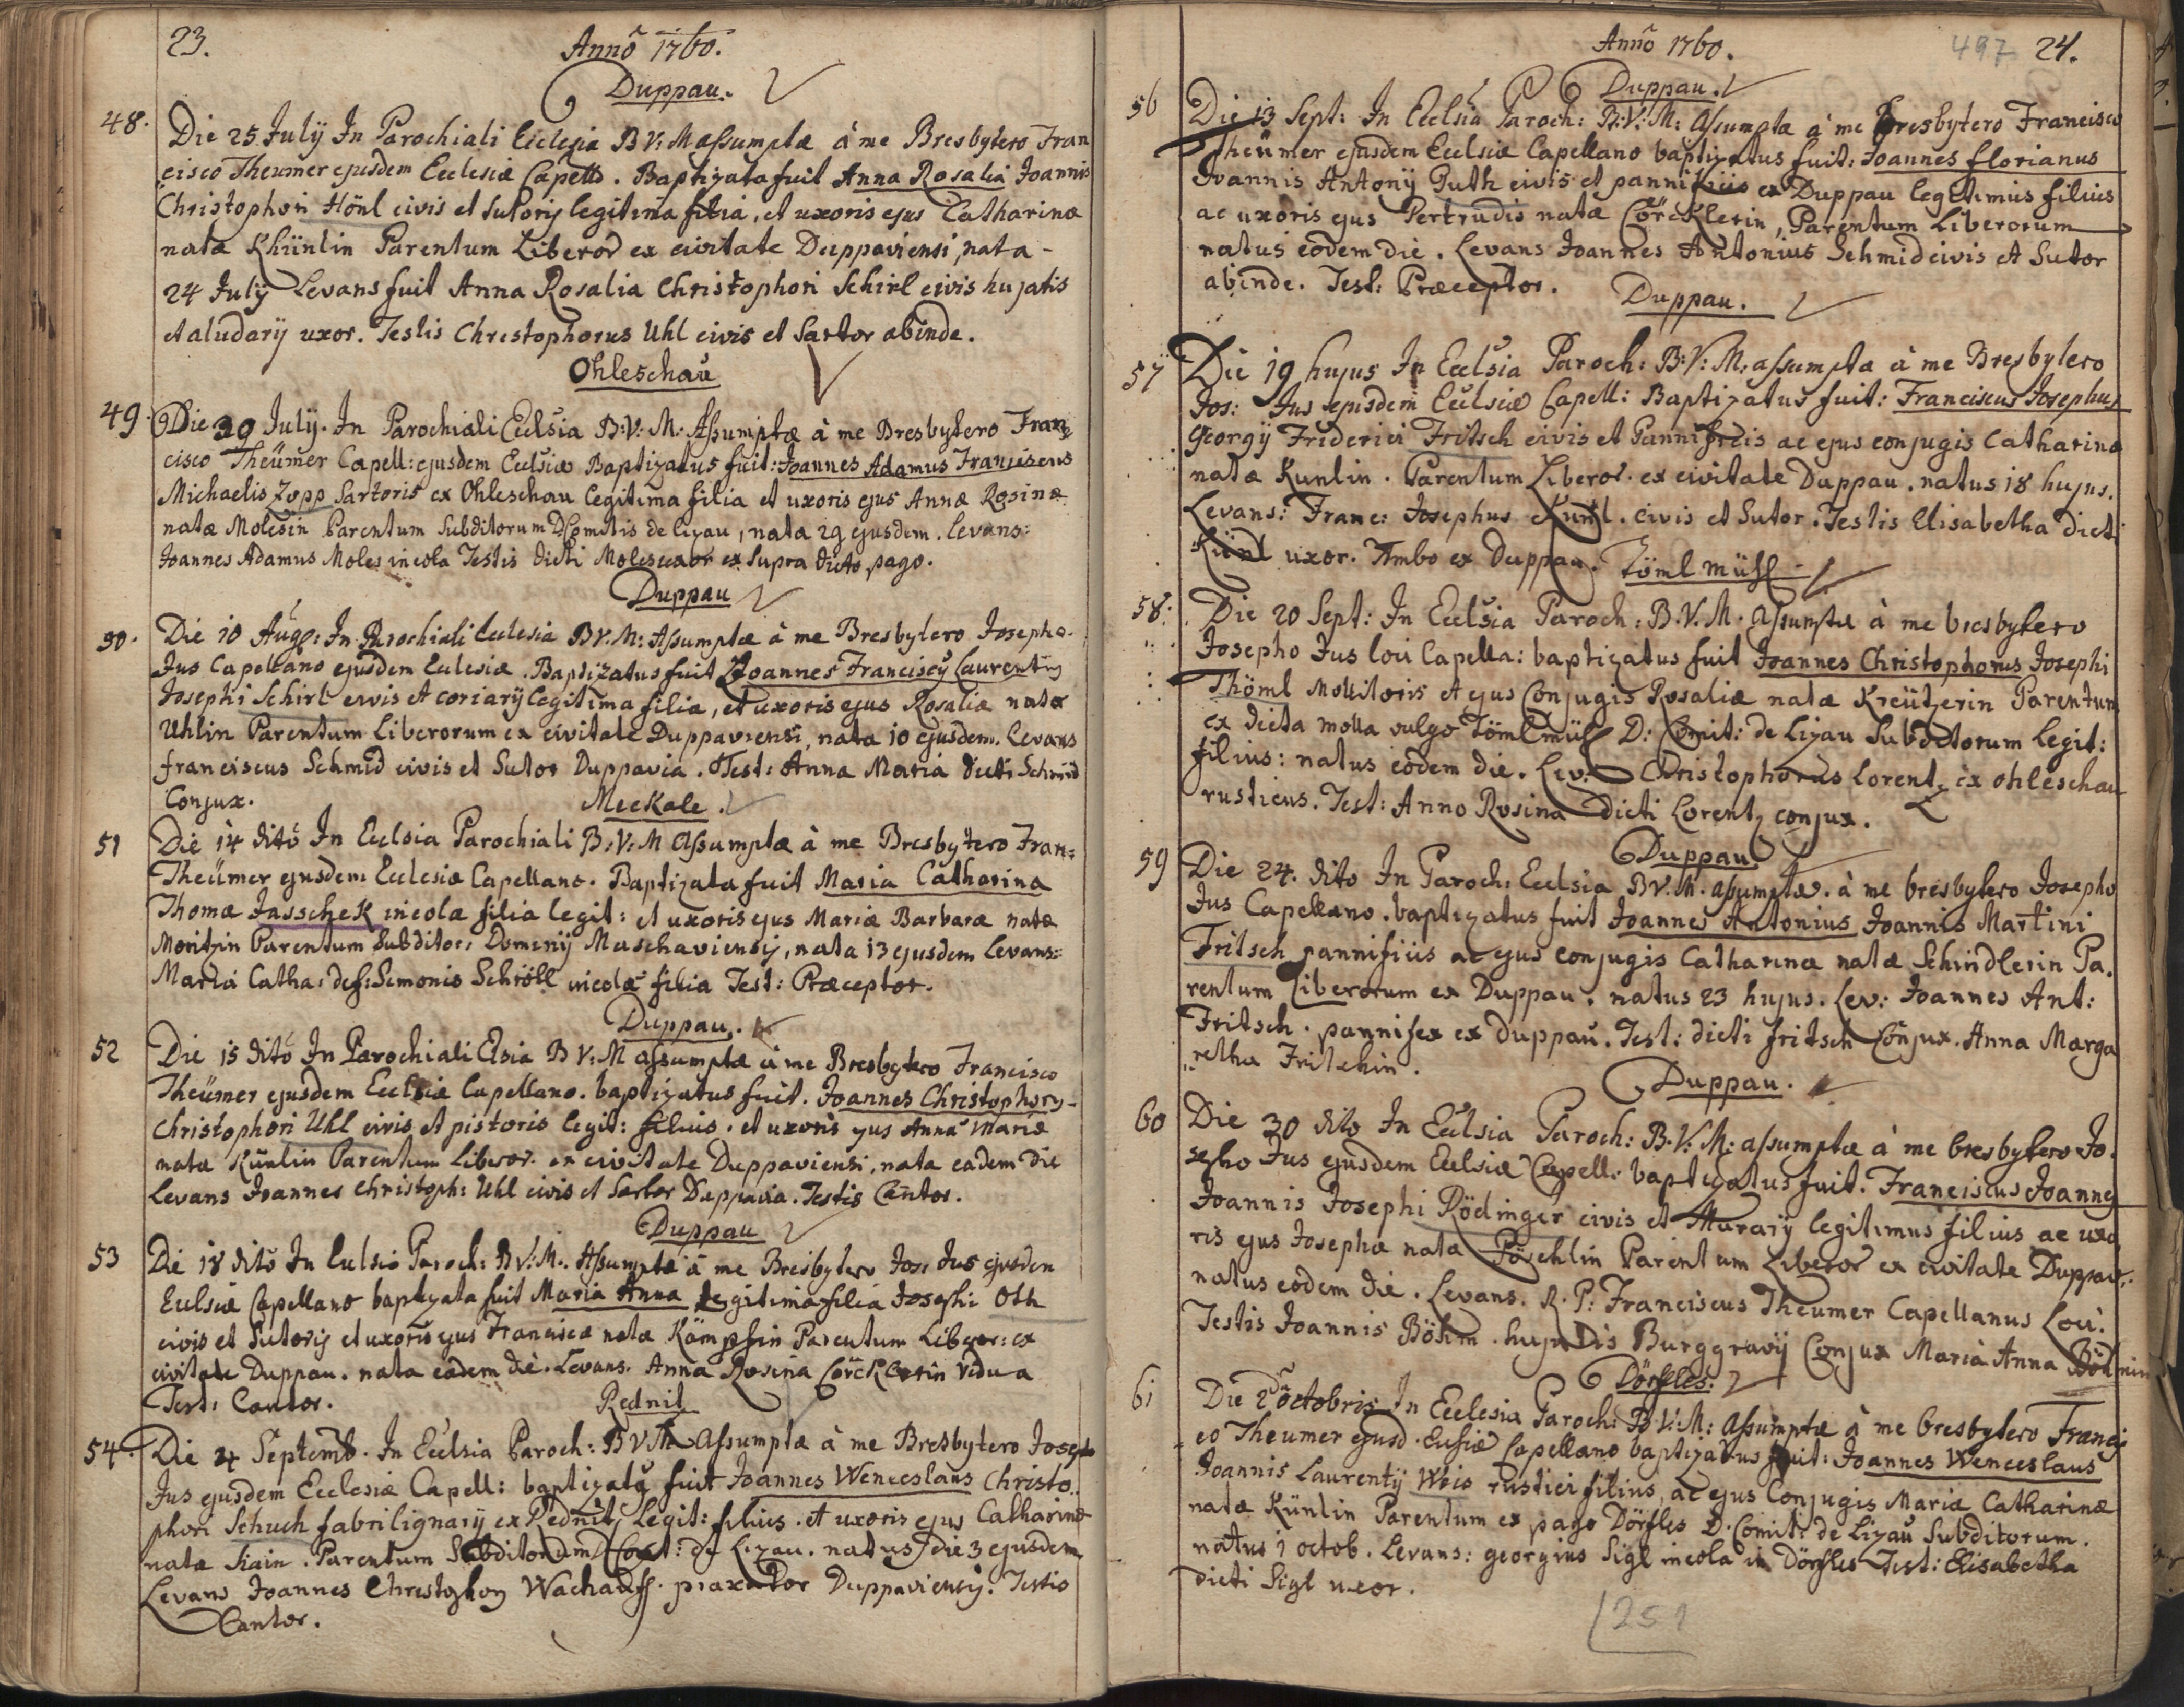 23.
Anno 1760.
Duppau.
48. Die 25 July In Parochiali Ecclesia B V: M assumptæ à me Bresbytero Fran
cisco Theumer ejusdem Ecclesiæ Capello. Baptizata fuit Anna Rosalia Joannis
Christophori Hönl civis et Sutoris legitima filia, et uxoris ejus Catharinæ
natæ Khünlin Parentum Liberor ex civitate Duppaviensi, nata -
24 July Levans fuit Anna Rosalia Christophori Schirl civis hujatis
et aludarij uxor. Testis Christophorus Uhl civis et Sartor abinde.
Ohleschau
49. Die 29 July. In Parochiali Ecclsia B: V: M: Assumptæ à me Bresbytero Fran
cisco Theümer Capell: ejusdem Ecclsiæ Baptizatus fuit: Joannes Adamus Franciscus
Michaelis Zopp Sartoris ex Ohleschau legitima filia et uxoris ejus Annæ Rosinæ
natæ Molesin Parentum Subditorum D Comitis de Lizau, nata 29 ejusdem. Levans:
Joannes Adamus Moles incola Testis dicti Moles uxor ex supra dicto pago.
Duppau
50. Die 10 Aug: In Parochiali Ecclesia B V: M: Assumptæ à me Bresbytero Josepho
Jus Capellano ejusdem Eclesiæ. Baptizatus fuit Joannes Franciscy Laurentiy
Josephi Schirl civis et coriarij legitima filia, et uxoris ejus Rosaliæ natæ
Uhlin Parentum Liberorum ex civitate Duppaviensi, nata 10 ejusdem. Levans
franciscus Schmid civis et Sutor Duppavia. Test: Anna Maria dicti Schmid
Conjux.
Meckale.
51 Die 14 dito In Ecclsia Parochiali B: V: M Assumptæ à me Bresbytero Fran:
Theümer ejusdem Ecclesiæ Capellano. Baptizata fuit Maria Catharina
Thomæ Jasschek incolæ filia legit: et uxoris ejus Mariæ Barbaræ natæ
Moritzin Parentum Subditor: Dominij Maschaviensis, nata 13 ejusdem Levans:
Maria Catha: def: Simonis Schröll incolæ filia Test: Præceptor.
Duppau.
52 Die 15 dito In Parochiali Elsia B V: M assumptæ à me Bresbytero Francisco
Theümer ejusdem Ecclsiæ Capellano. baptizatus fuit. Joannes Christophory
Christophori Uhl civis et pistoris legit: filius. et uxoris ejus Annæ Mariæ
natæ Künlin Parentum Liberor. ex civitate Duppaviensi, nata eadem die
Levans Joannes Christoph: Uhl civis et Sartor Duppavia. Testis Cantor.
Duppau
53 Die 18 dito In Eclsia Paroch: B V: M. Assumptæ à me Bresbytero Jos: Jus ejusdem
Eclsiæ Capellano baptizata fuit Maria Anna legitima filia Josephi Oth
civis et Sutoris et uxoris ejus Franciscæ natæ Kämpfin Parentum Liberor: ex
civitate Duppau. nata eadem die. Levans. Anna Rosina Cörcklerin vidua
Test: Cantor.
Rednit
54. Die 4 Septemb. In Ecclsia Paroch: B V M Assumptæ à me Bresbytero Josepho
Jus ejusdem Ecclesiæ Capell: baptizaty fuit Joannes Wenceslaus Christo
phori Schuch fabri lignarij ex Rednitz Legit: filius. et uxoris ejus Catharinæ
natæ Siain. Parentum Subditorum D Comit: de Lizau. natus die 3 ejusdem
Levans Joannes Christophory Wachauff. praxator Duppaviensis. Testis
Cantor.
Anno 1760.
497 24.
Duppau.
56 Die 13 Sept: In Ecclsia Paroch: B: V: M: Assumptæ à me Bresbytero Francisco
Theümer ejusdem Ecclsiæ Capellano baptizatus fuit: Joannes florianus
Joannis Antonij Puth civis et pannificis ex Duppau legitimus filius
ac uxoris ejus Pertrudis natæ Cörcklerin, Parentum Liberorum
natus eodem die. Levans Joannes Antonius Schmid civis et Sutor
abinde. Test: Præceptor.
Duppau.
57 Die 19 hujus In Ecclsia Paroch: B: V: M: assumptæ à me Bresbytero
Jos: Jus ejusdem Ecclsiæ Capell: Baptizatus fuit: Franciscus Josephus
Georgij Friderici Fritsch civis et Pannificis ac ejus conjugis Catharinæ
natæ Kunlin. Parentum Liberor. ex civitate Duppau. natus 18 hujus.
Levans: Franc: Josephus Künl. civis et Sutor. Testis Elisabetha dicti
Künl uxor. Ambo ex Duppau.
Töml mühl
58. Die 20 Sept: In Ecclsia Paroch: B. V. M. Assumptæ à me bresbytero
Josepho Jus loci Capella: baptizatus fuit Joannes Christophorus Josephi
Thöml Mollitoris et ejus Conjugis Rosaliæ natæ Kreützerin Parentum
ex dicta molla vulgo Tömlmühl D: Comit: de Lizau Subditorum legit:
filius: natus eodem die. Lev: Christophorus Lorentz ex Ohleschau
rusticus. Test: Anno Rosina dicti Lorentz conjux.
Duppau
59 Die 24. dito In Paroch: Ecclsia B V. M. assumptæ. à me bresbytero Josepho
Jus Capellano. baptizatus fuit Joannes Antonius Joannis Martini
Fritsch pannificis ac ejus conjugis Catharinæ natæ Schindlerin Pa.
rentum Liberorum ex Duppau. natus 23 hujus. Lev: Joannes Ant:
Fritsch. pannifex ex Duppau. Test: dicti fritsch Conjux. Anna Marga
retha Fritschin.
Duppau.
60 Die 30 dito In Ecclsia Paroch: B. V: M: assumptæ à me bresbytero Jo
sepho Jus ejusdem Ecclsiæ Capell: baptizatus fuit. Franciscus Joanney
Joannis Josephi Rödinger civis et Murarij legitimus filius ac uxo
ris ejus Josephæ natæ Pöschlin Parentum Liberor ex civitate Duppau.
natus eodem die. Levans. R. P: Franciscus Theumer Capellanus Loci.
Testis Joannis Böhm. hujatis Burggravij Conjux Maria Anna Böhmin
Dörfles.
61 Die 2 octobris In Ecclesia Paroch: B: V: M: Assumptæ à me bresbytero Francis
co Theumer ejusd. Eclsiæ Capellano baptizatus fuit: Joannes Wenceslaus
Joannis Laurentij Weis rustici filius, ac ejus Conjugis Mariæ Catharinæ
natæ Künlin Parentum ex pago Dörfles D. Comit: de Lizau Subditorum.
natus 1 octob. Levans: georgius Sigl incola in Dörfles Test: Elisabetha
dicti Sigl uxor.
251